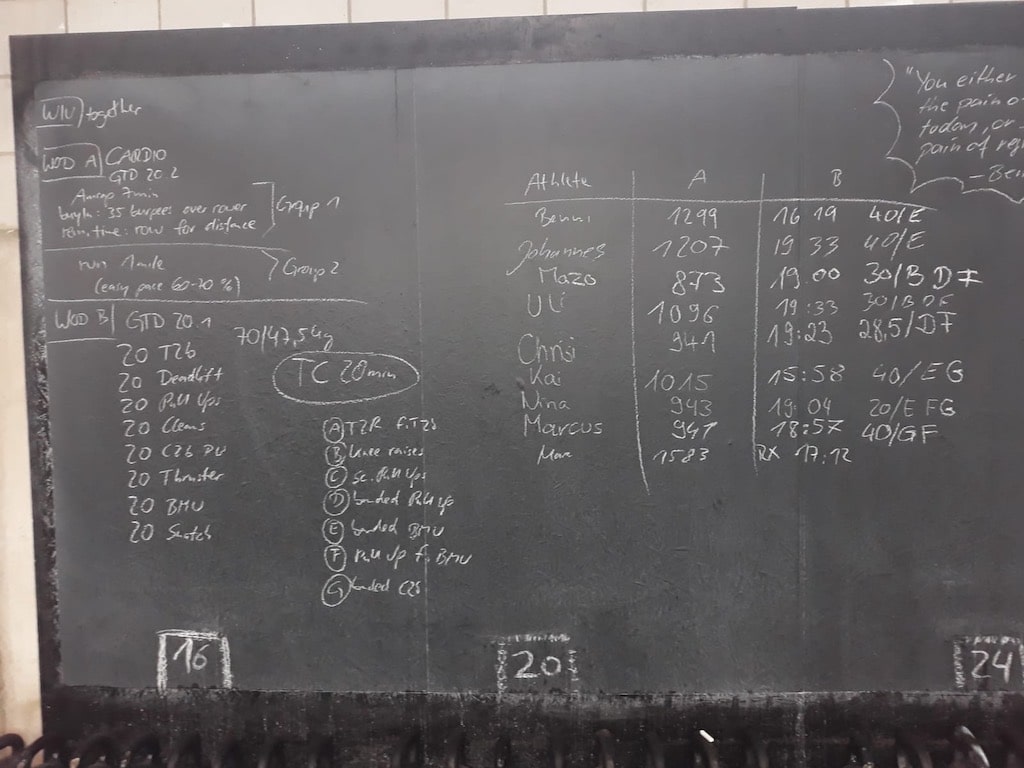 WIU together
WOD A CARDIO
GTD 20.2
Amrap 7 min
buyIn: 35 burpees over rower
rem. time: row for distance
Group 1
run 1 mile
(easy pace 60-70 %)
Group 2
WOD B GTD 20.1
70/47,5 kg
20 T2b
20 Deadlift
20 Pull Ups
20 Cleans
20 C2b PU
20 Thruster
20 BMU
20 Snatch
TC 20 min
A T2R f. T2b
B Knee raises
C sc. Pull Ups
D banded Pull Up
E banded BMU
F Pull Up f. BMU
G banded C2b
Athlete A B
Benni 1299 16 19 40/E
Johannes 1207 19 33 40/E
Mazo 873 19.00 30/B D F
Uli 1096 19:33 30/B DF
Chrisi 941 19:23 28,5/DF
Kai 1015 15:58 40/EG
Nina 943 19:04 20/E FG
Marcus 941 18:57 40/GF
1583 RX 17:12
"You either
the pain
today, or
pain of
16
20
24